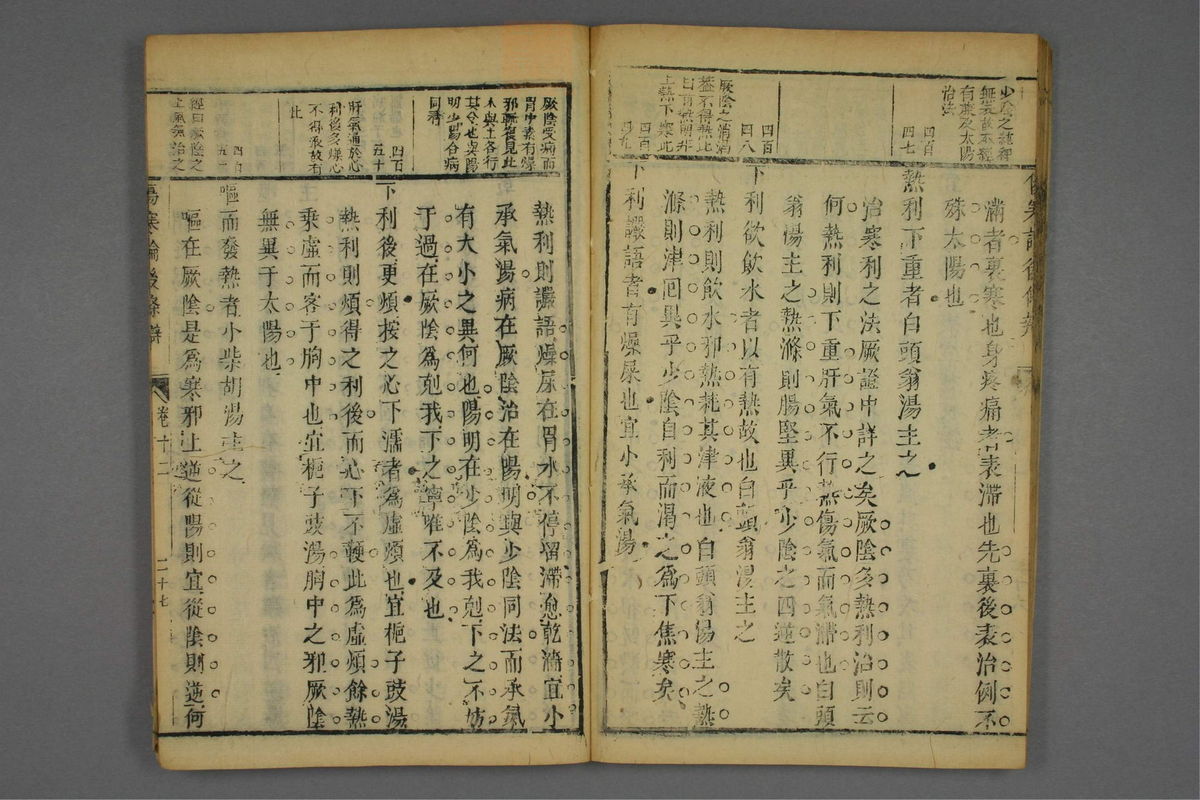 滿者裏寒也身疼痛者表滯也先裏後表治例不
殊太陽也
熱利下重者白頭翁湯主之
治寒利之法厥證中詳之矣厥陰多熱利治則云
何熱利則下重肝氣不行熱傷氣而氣滯也白頭
翁湯主之熱滌則腸堅異乎少陰之四逆散矣
下利欲飲水者以有熱故也白頭翁湯主之
熱利則飲水邪熱耗其津液也白頭翁湯主之熱
滌則津回異乎少陰自利而渴之爲下焦寒矣
下利讝語者有燥屎也宜小承氣湯
少陰之
無
有兼及太陽
治法
四百
四七
四百
四八
厥陰之消渴
四百
四九
熱利則讝語燥屎在胃水不停留滯愈乾滴宜小
承氣湯病在厥陰治在陽明與少陰同法而承氣
有大小之異何也陽明在少陰爲我剋下之不妨
于過在厥陰爲剋我下之寧唯不及也
下利後更煩按之心下濡者爲虛煩也宜梔子豉湯
熱利則煩得之利後而心下不鞕此爲虛煩餘熱
乘虛而客于胸中也宜梔子豉湯胸中之邪厥陰
無異于太陽也
嘔而發熱者小柴胡湯主之
嘔在厥陰是爲寒邪上逆從陽則宜從陰則逆何
厥陰受病而
胃中素有燥
邪輒復見此
木與土各行
其令也與陽
明少陽合病
同看
四百
五十
肝氣通於心
利後多燥心
不得承故有
此
四百
五一
經曰厥陰之
上氣治之
傷寒論後條辯
卷十二
二十七